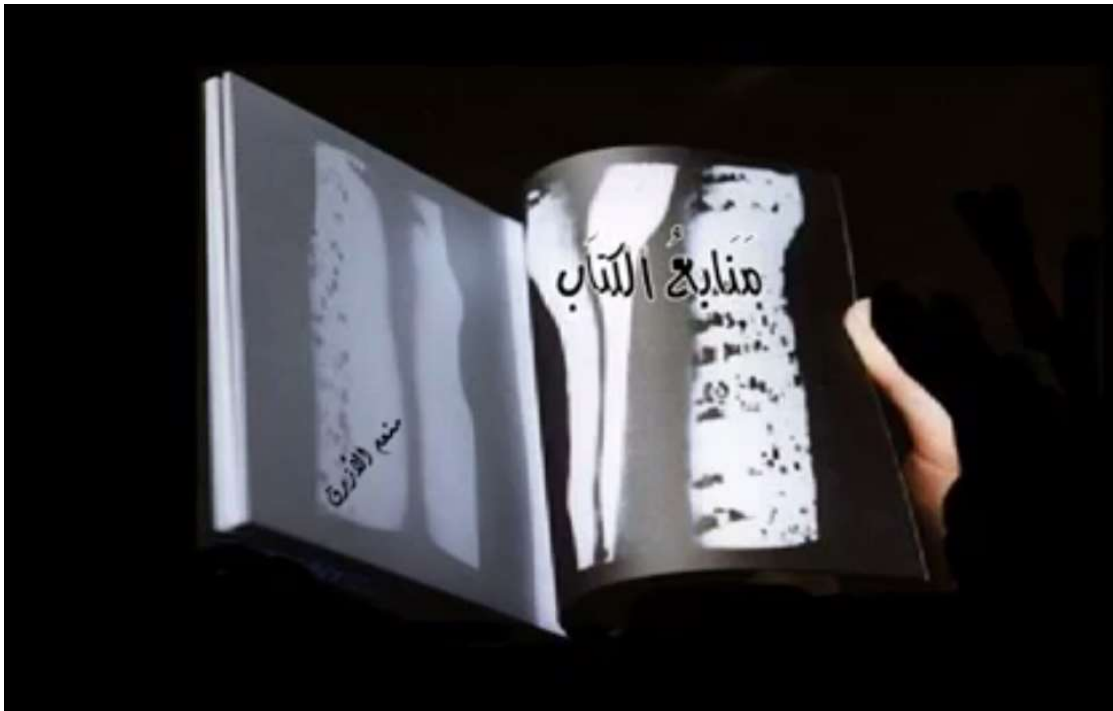 مَنَابِعُ الكتَاب
منعم الأزرق